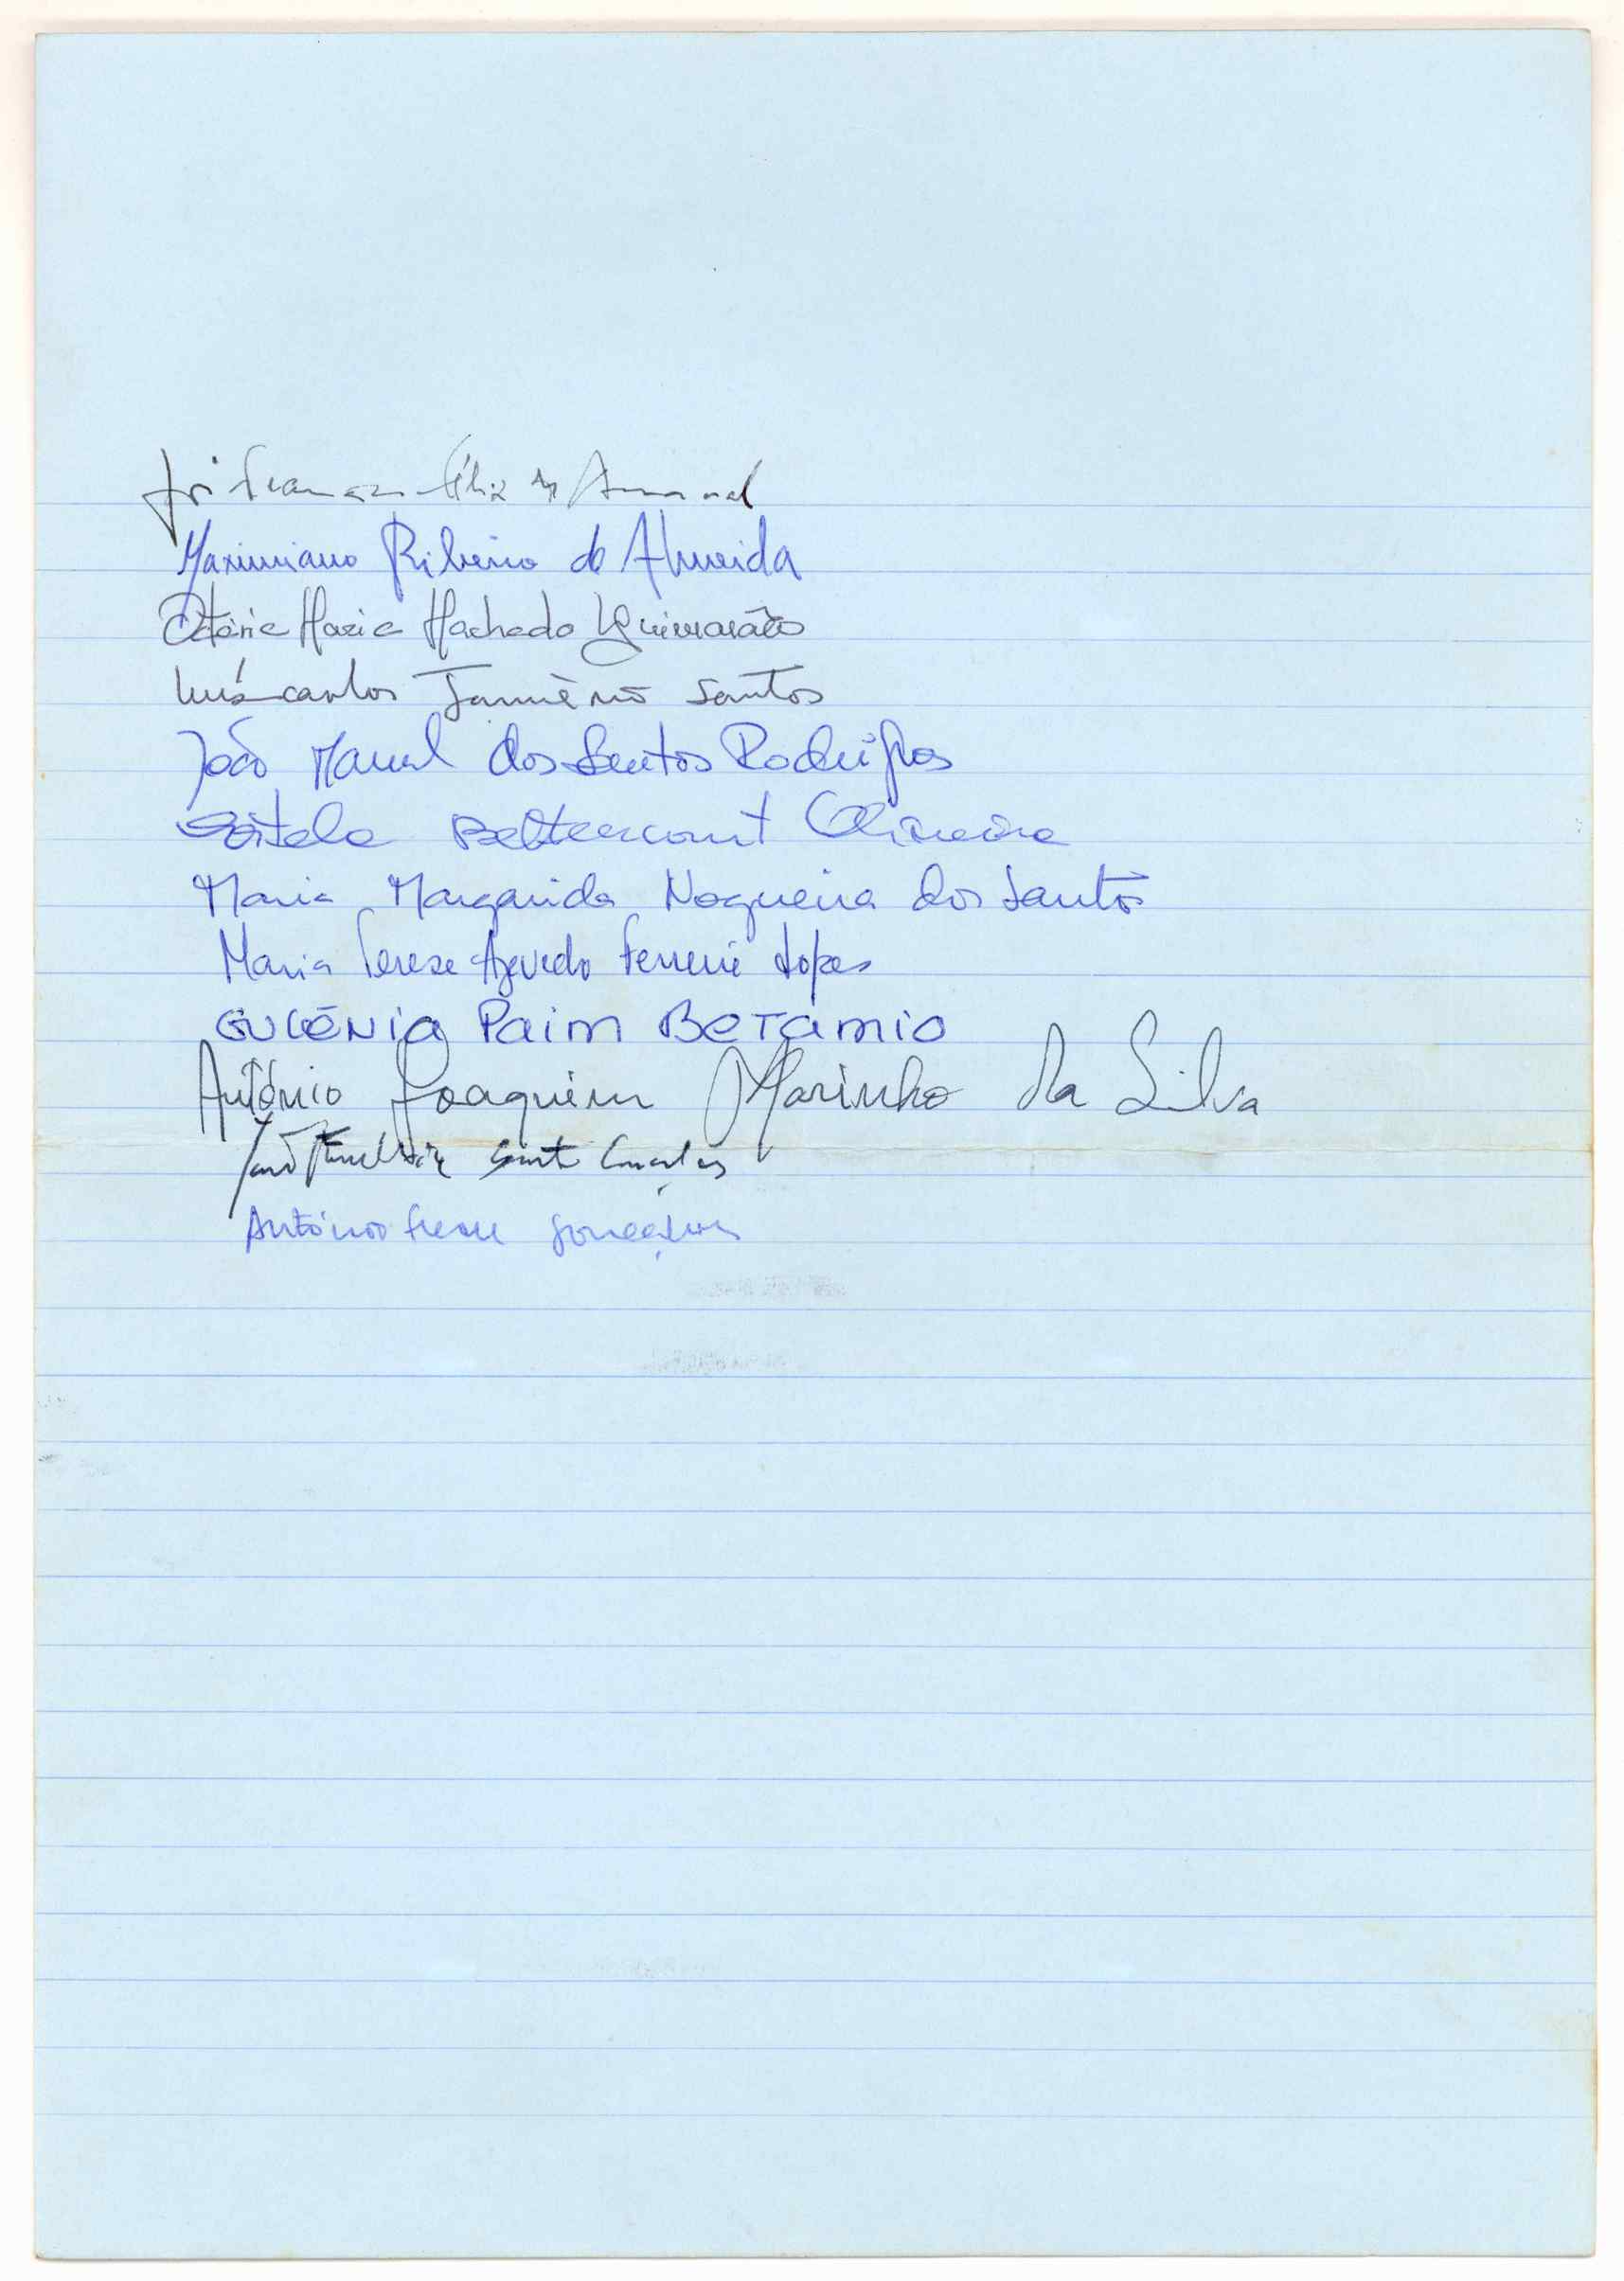 José Francisco Félix do Amaral
Maximiano Ribeiro de Almeida
Octávia Maria Machado Guimarães
Luís Carlos Januário Santos
João Manuel dos Santos Rodrigues
Estela Bettencourt Oliveira
Maria Margarida Nogueira dos Santos
Maria Teresa Azevedo Ferreira Lopes
EUGÉNIA Paim BETâmio
António Joaquim Marinho da Silva
António Gonçalves